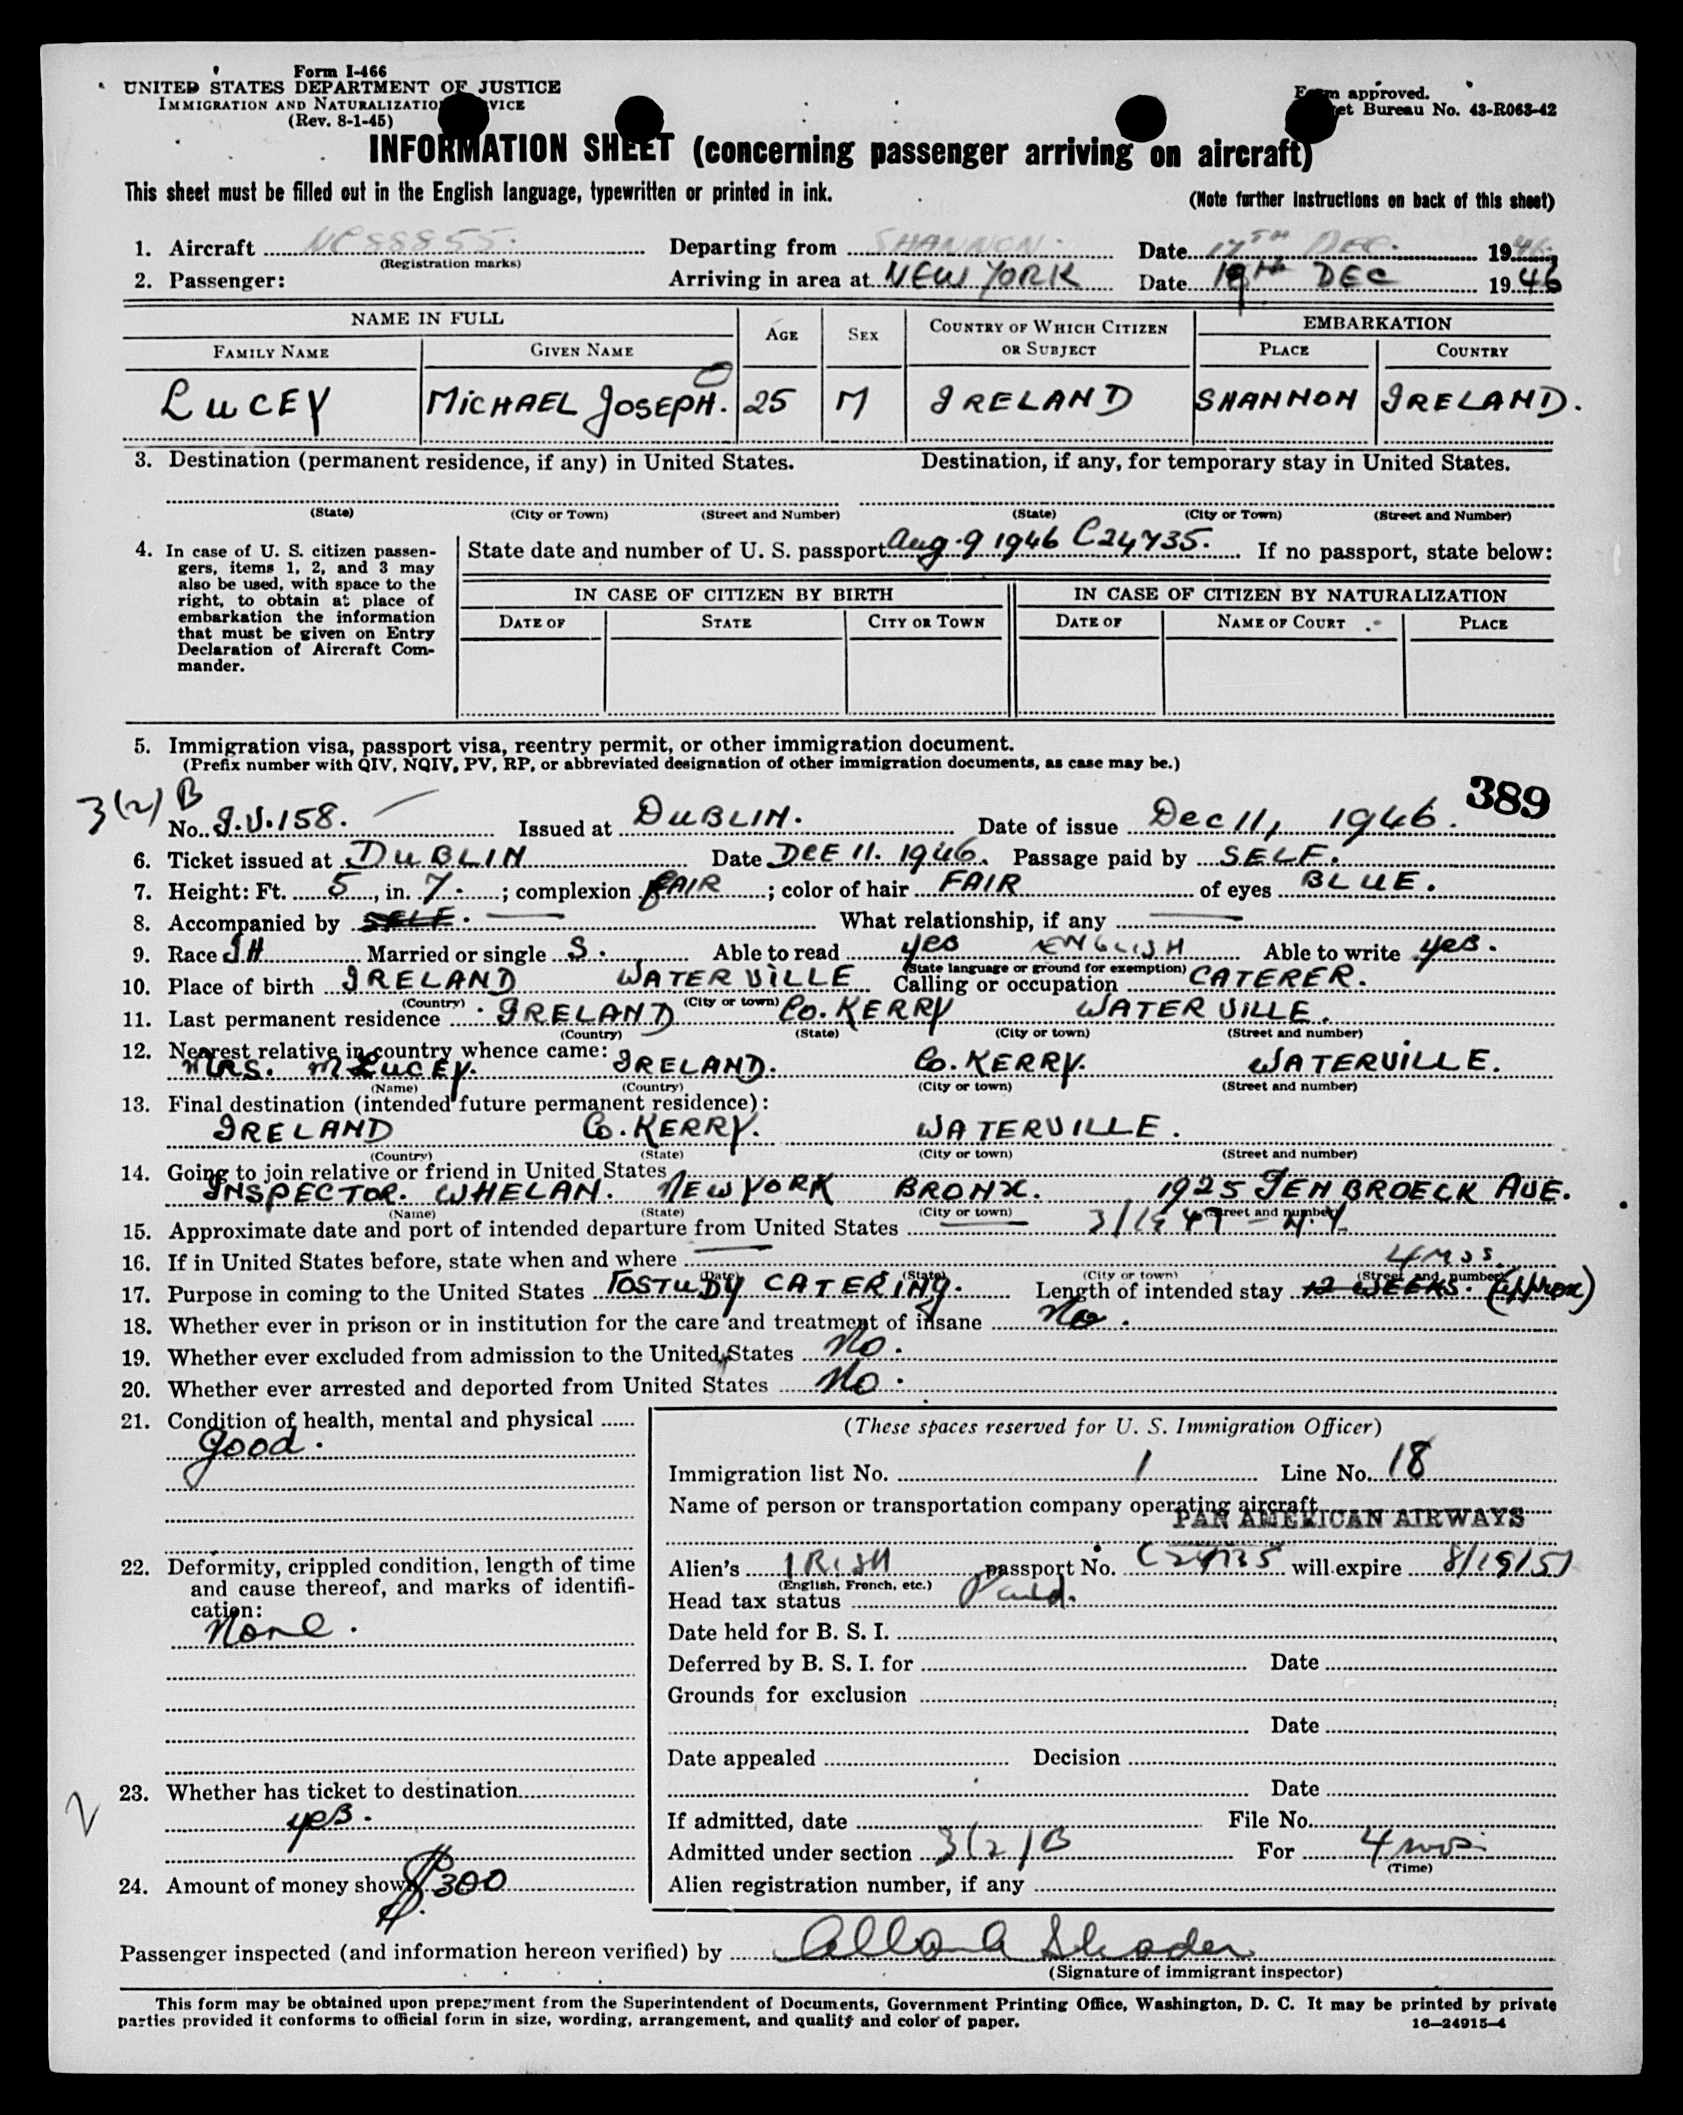 Form I-466
UNITED STATES DEPARTMENT OF JUSTICE
IMMIGRATION AND NATURALIZATION SERVICE
(Rev. 8-1-45)
Form approved.
Bureau No. 43-R063-42
INFORMATION SHEET (concerning passenger arriving on aircraft)
This sheet must be filled out in the English language, typewritten or printed in ink.
(Note further instructions on back of this sheet)
1. Aircraft NC88855. Departing from SHANNON. Date 17TH DEC. 1946
(Registration marks)
2. Passenger: Arriving in area at NEW YORK Date 19th DEC 1946
NAME IN FULL AGE SEX COUNTRY OF WHICH CITIZEN OR SUBJECT EMBARKATION
FAMILY NAME GIVEN NAME PLACE COUNTRY
LUCEY MICHAEL JOSEPH. 25 M IRELAND SHANNON IRELAND.
3. Destination (permanent residence, if any) in United States. Destination, if any, for temporary stay in United States.
(State) (City or Town) (Street and Number) (State) (City or Town) (Street and Number)
4. In case of U. S. citizen passen-
gers, items 1, 2, and 3 may
also be used, with space to the
right, to obtain at place of
embarkation the information
that must be given on Entry
Declaration of Aircraft Com-
mander.
State date and number of U. S. passport Aug. 9 1946 C24735. If no passport, state below:
IN CASE OF CITIZEN BY BIRTH IN CASE OF CITIZEN BY NATURALIZATION
DATE OF STATE CITY OR TOWN DATE OF NAME OF COURT PLACE
5. Immigration visa, passport visa, reentry permit, or other immigration document.
(Prefix number with QIV, NQIV, PV, RP, or abbreviated designation of other immigration documents, as case may be.)
389
3(2) B
No. I.V.158. Issued at DUBLIN. Date of issue Dec 11, 1946.
6. Ticket issued at DUBLIN Date DEC 11. 1946. Passage paid by SELF.
7. Height: Ft. 5, in. 7.; complexion FAIR; color of hair FAIR of eyes BLUE.
8. Accompanied by SELF. What relationship, if any
9. Race IH Married or single S. Able to read yes ENGLISH Able to write yes.
(State language or ground for exemption)
10. Place of birth IRELAND WATERVILLE Calling or occupation CATERER.
(Country) (City or town)
11. Last permanent residence IRELAND CO. KERRY WATERVILLE.
(Country) (State) (City or town) (Street and number)
12. Nearest relative in country whence came:
MRS. M LUCEY. IRELAND. CO. KERRY. WATERVILLE.
(Name) (Country) (City or town) (Street and number)
13. Final destination (intended future permanent residence):
IRELAND CO. KERRY. WATERVILLE.
(Country) (State) (City or town) (Street and number)
14. Going to join relative or friend in United States
INSPECTOR. WHELAN. NEW YORK BRONX. 1925 TENBROECK AVE.
(Name) (State) (City or town) (Street and number)
15. Approximate date and port of intended departure from United States 3/19 47 - N.Y.
16. If in United States before, state when and where
(Date) (State) (City or town) (Street and number)
4 mos.
17. Purpose in coming to the United States TO STUDY CATERING. Length of intended stay 12 WEEKS. (approx)
18. Whether ever in prison or in institution for the care and treatment of insane No.
19. Whether ever excluded from admission to the United States No.
20. Whether ever arrested and deported from United States No.
21. Condition of health, mental and physical
good.
22. Deformity, crippled condition, length of time
and cause thereof, and marks of identifi-
cation:
None.
23. Whether has ticket to destination
yes.
24. Amount of money shown $300
(These spaces reserved for U. S. Immigration Officer)
Immigration list No. 1 Line No. 18
Name of person or transportation company operating aircraft
PAN AMERICAN AIRWAYS
Alien's IRISH passport No. C24735 will expire 8/19/51
(English, French, etc.)
Head tax status Paid.
Date held for B. S. I.
Deferred by B. S. I. for Date
Grounds for exclusion
Date
Date appealed Decision
Date
If admitted, date File No.
Admitted under section 3(2)B For 4 mos.
(Time)
Alien registration number, if any
Passenger inspected (and information hereon verified) by
(Signature of immigrant inspector)
This form may be obtained upon prepayment from the Superintendent of Documents, Government Printing Office, Washington, D. C. It may be printed by private
parties provided it conforms to official form in size, wording, arrangement, and quality and color of paper.
16—24915-4